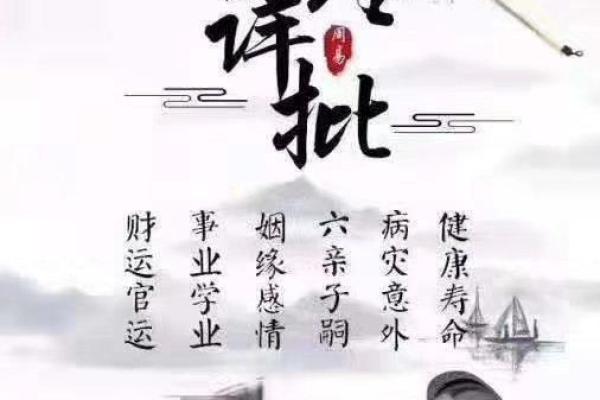 详
周易
批
健康寿命
病灾意外
六亲子嗣
姻缘感情
事业学业
财运官运